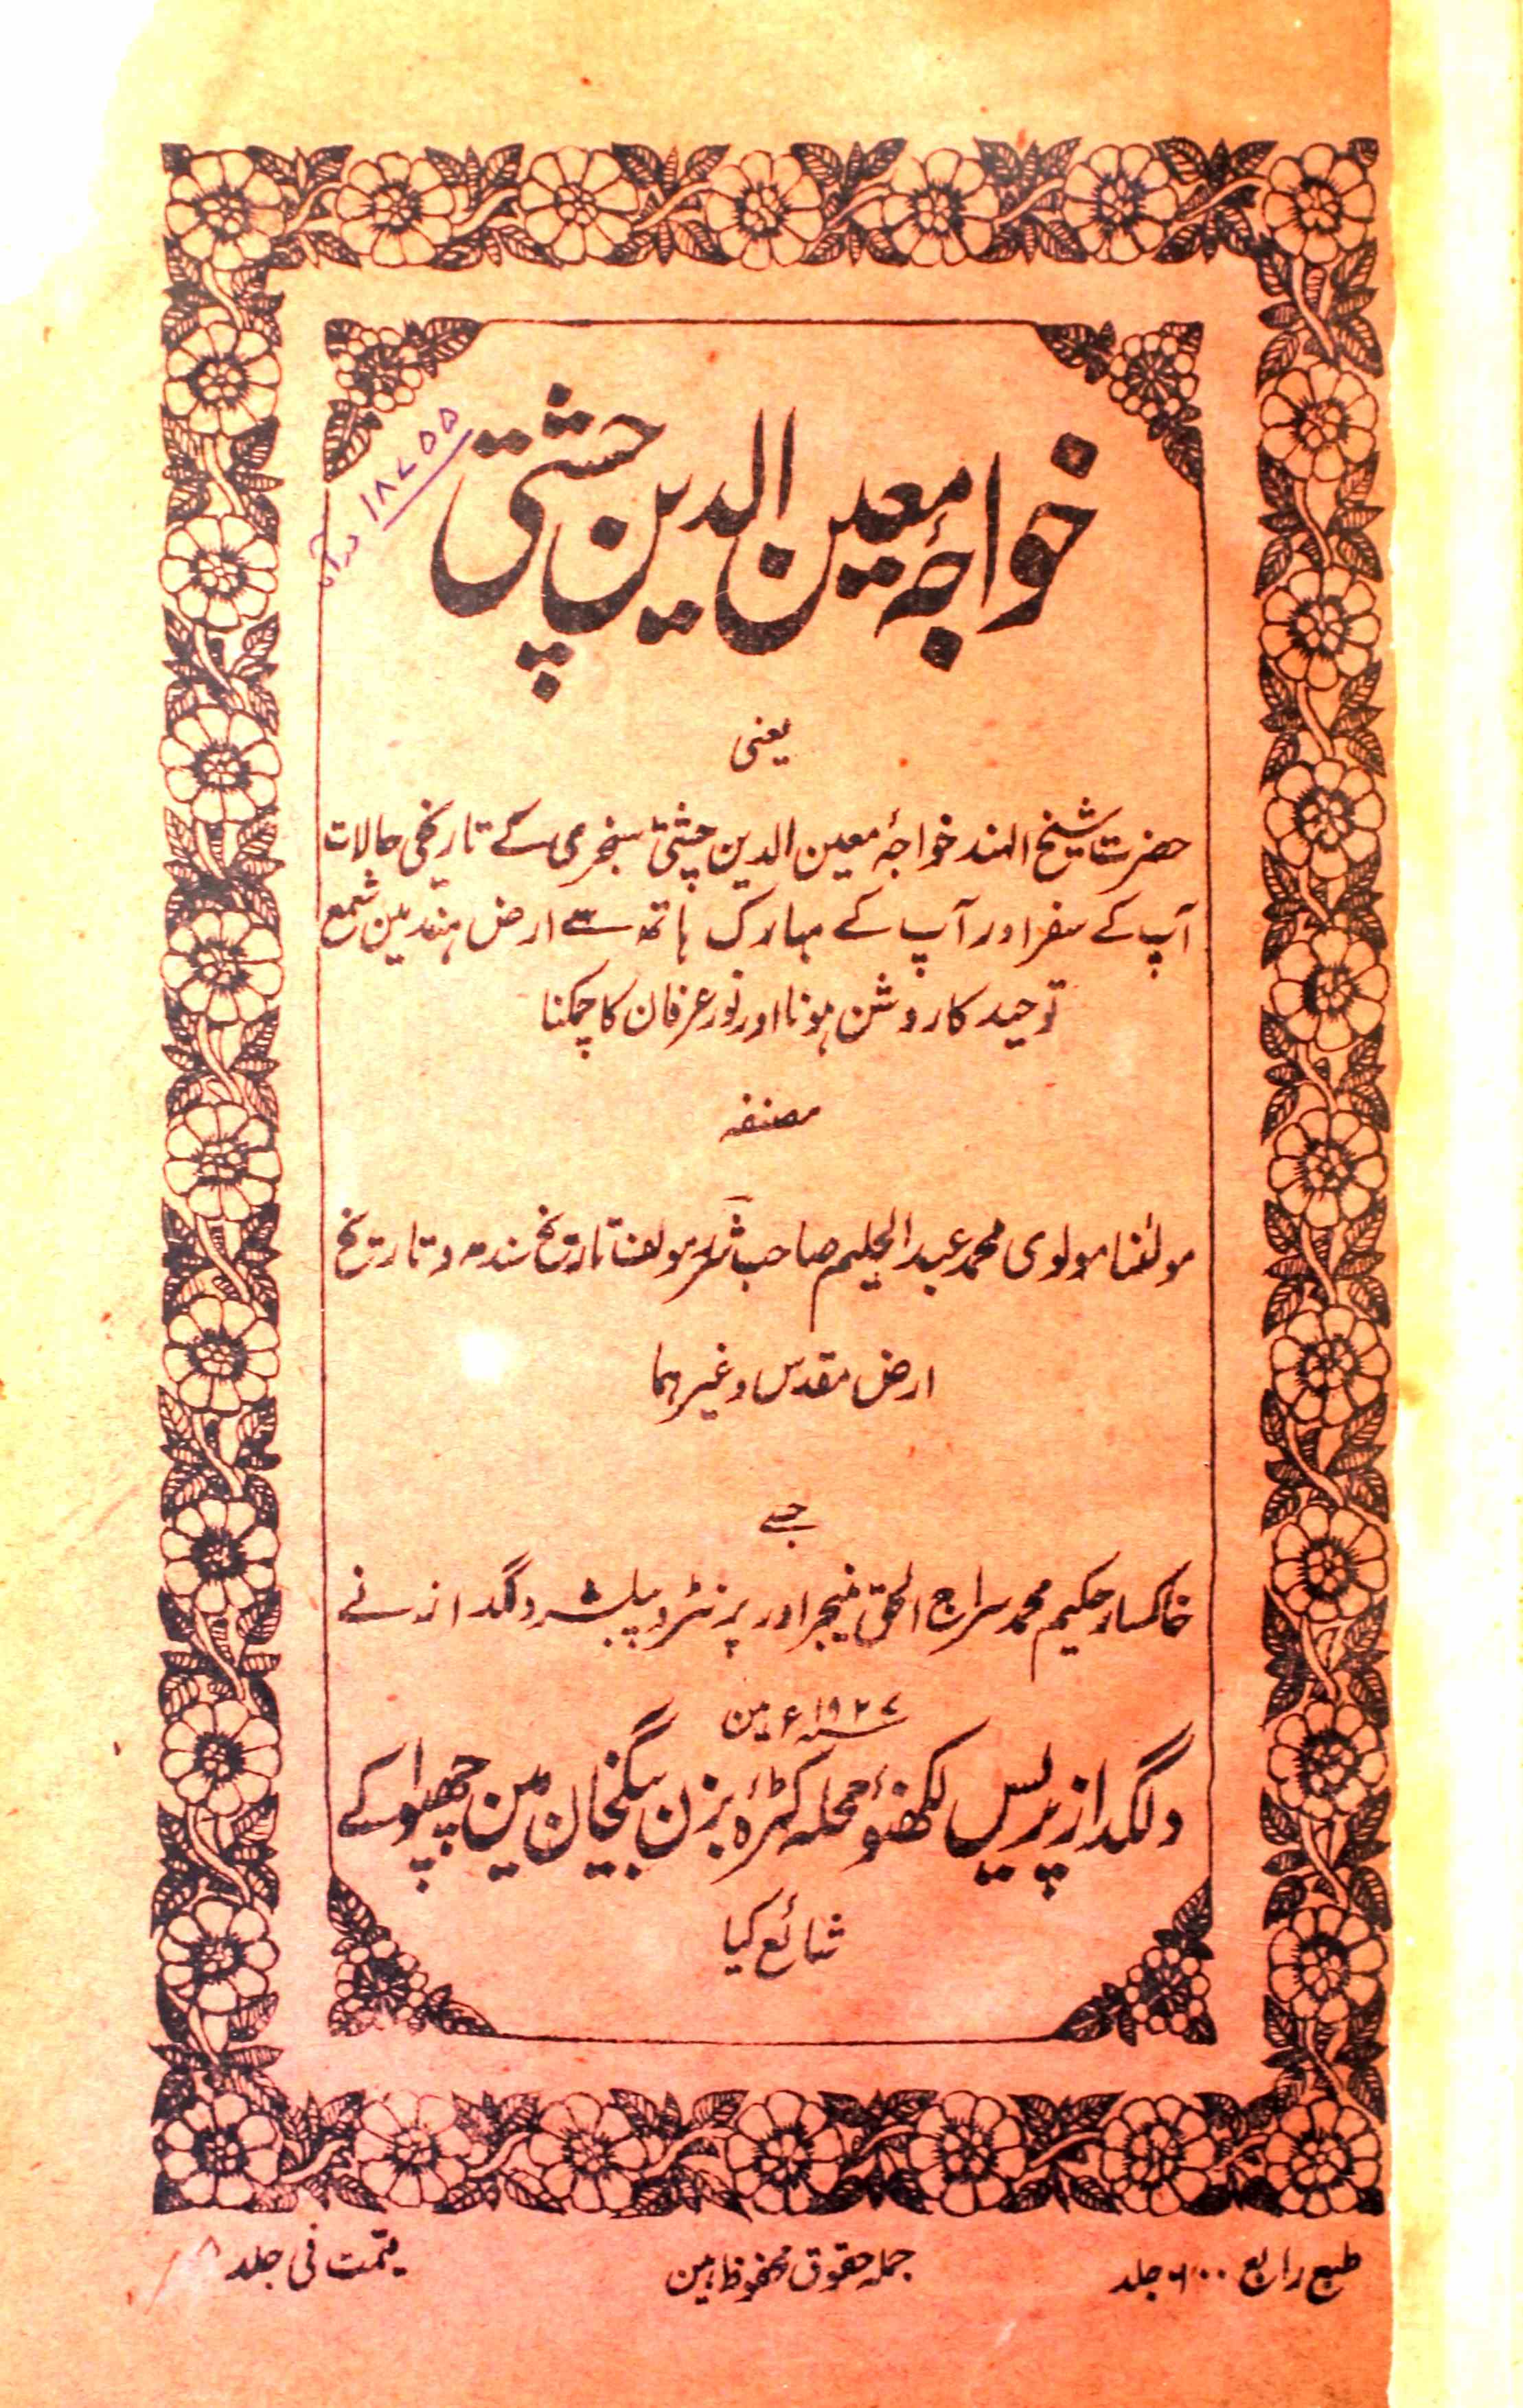 خواجۂ معین الدین چشتی
۱۸۷۵۵
یعنی
حضرت شیخ الہند خواجۂ معین الدین چشتی سنجری کے تاریخی حالات
آپ کے سفر اور آپ کے مبارک ہاتھ سے ارض ہند مین شمع
توحید کا روشن ہونا اور نور عرفان کا چمکنا
مصنفہ
مولٰنا مولوی محمد عبد الحلیم صاحب شرر مولف تاریخ سندھ و تاریخ
ارض مقدس وغیرہما
جسے
خاکسار حکیم محمد سراج الحق منیجر اور پرنٹر و پبلشر دلگداز نے
۱۹۲۷ء مین
دلگداز پریس لکھنؤ محلہ کٹرۂ بزن بیگخان مین چھپوا کے
شائع کیا
طبع رابع ۶۰۰ جلد
جملہ حقوق محفوظ ہین
قیمت فی جلد